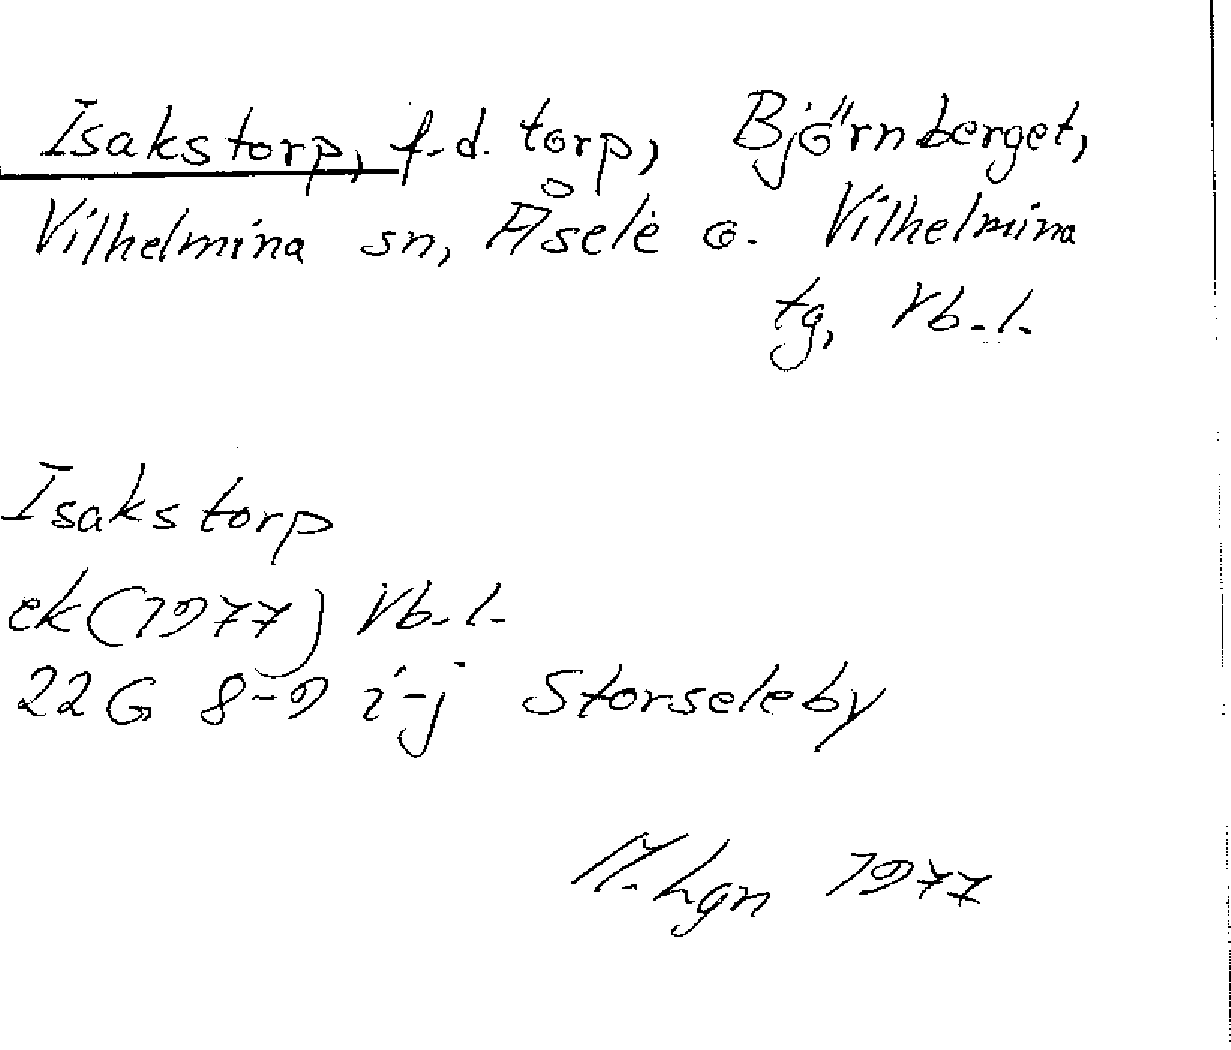 Isakstorp, f.d. torp, Björnberget,
Vilhelmina sn, Åsele o. Vilhelmina
tg, Vb. l.
Isakstorp
ek (1977) Vb. l.
22 G 8-9 i-j Storseleby
M. Lgn 1977